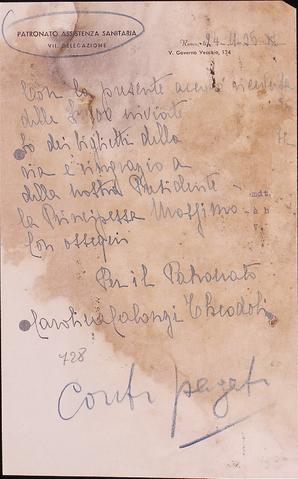 PATRONATO ASSISTENZA SANITARIA
VII. DELEGAZIONE
Roma 24-11-25
V. Governo Vecchio, 134
Con la presente accuso ricevuta
delle L. 100 inviate
dei biglietti della
e ringrazio a
della nostra Presidente
la Principessa Massimo
Con ossequi
Per il Patronato
Carolina Calanzi Theodoli
728
Conti pagati